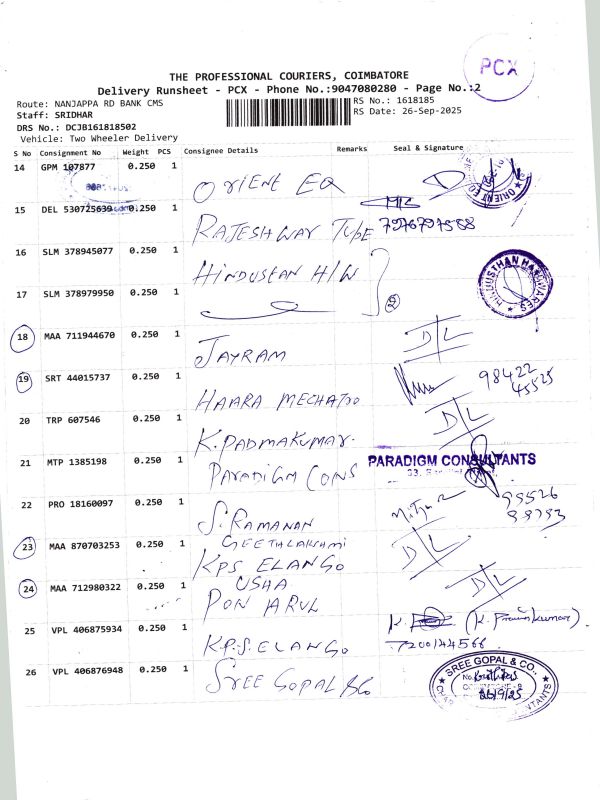 PCX
THE PROFESSIONAL COURIERS, COIMBATORE
Delivery Runsheet - PCX - Phone No.:9047080280 - Page No.:2
Route: NANJAPPA RD BANK CMS
RS No.: 1618185
Staff: SRIDHAR
RS Date: 26-Sep-2025
DRS No.: DCJB161818502
Vehicle: Two Wheeler Delivery
S No Consignment No Weight PCS Consignee Details Remarks Seal & Signature
14 GPM 107877 0.250 1 ORIENT EQ
15 DEL 530725639 0.250 1 RAJESHWAR TUBE
16 SLM 378945077 0.250 1 HINDUSTAN H/W
HINDUSTHAN HARDWARES
17 SLM 378979950 0.250 1
18 MAA 711944670 0.250 1 JAYRAM D/L
19 SRT 44015737 0.250 1 HAARA MECHATOO 98422 45525
20 TRP 607546 0.250 1 K.PADMAKUMAR. D/L
21 MTP 1385198 0.250 1 PARADIGM CONS PARADIGM CONSULTANTS
22 PRO 18160097 0.250 1 S.RAMANAN
23 MAA 870703253 0.250 1 GEETHALAKSHMI KPS ELANGO D/L
24 MAA 712980322 0.250 1 USHA PON ARUL D/L
25 VPL 406875934 0.250 1 K.P.S.ELANGO K. (K. Pravinkumar). 7200144566
26 VPL 406876948 0.250 1 SREE GOPAL &Co
SREE GOPAL & CO.
26/9/25